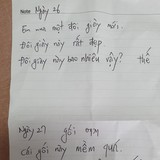 Ngày 26
Em mua một đôi giày mới.
Đôi giày này rất đẹp
Đôi giày này bao nhiêu vậy? thế
Ngày 27 gối ôm
Cái gối này mềm quá.